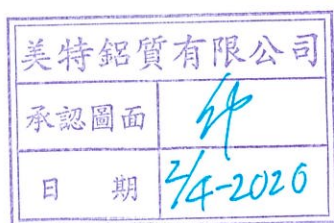 美特鋁質有限公司
承認圖面
日期 2/4-2020